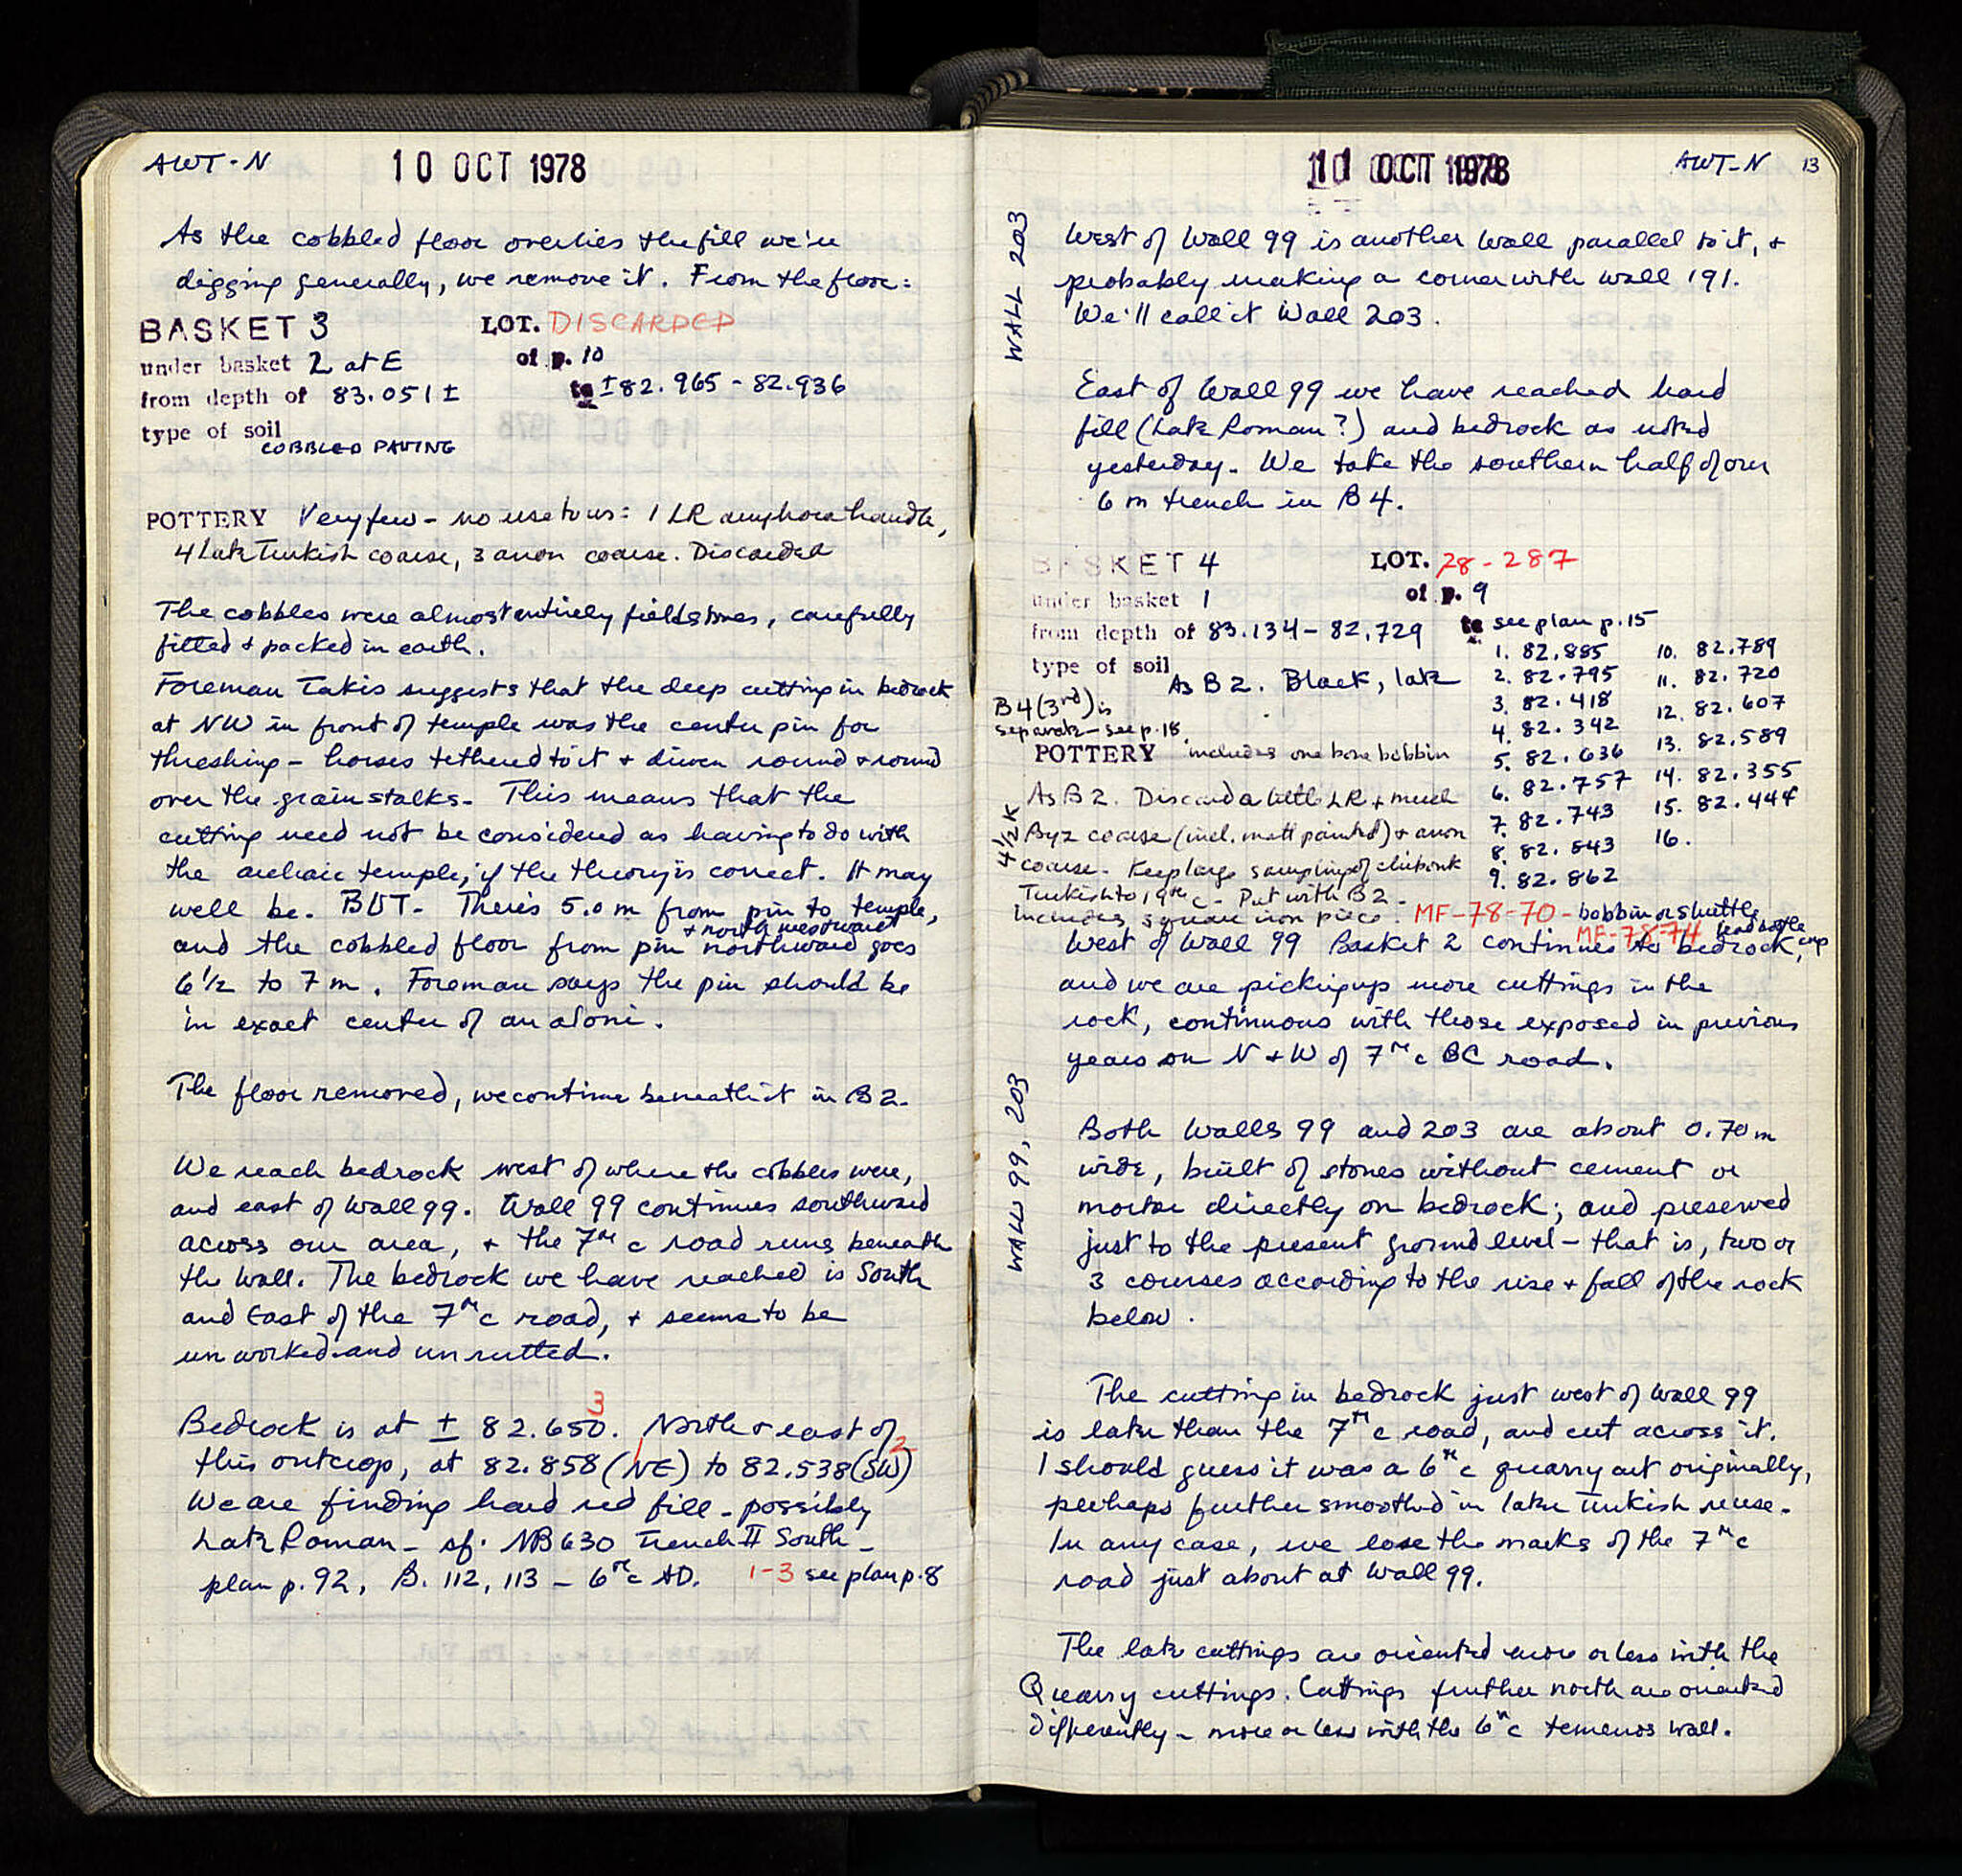 AWT-N
10 OCT 1978
As the cobbled floor overlies the fill we're
digging generally, we remove it. From the floor:
BASKET 3 LOT. DISCARDED
under basket 2 at E of p. 10
from depth of 83.051 ± to ±82.965 - 82.936
type of soil
COBBLED PAVING
POTTERY Very few - no use to us: 1 LR amphora handle,
4 Late Turkish coarse, 3 anon coarse. Discarded
The cobbles were almost entirely fieldstones, carefully
fitted + packed in earth.
Foreman Takis suggests that the deep cutting in bedrock
at NW in front of temple was the center pin for
threshing - horses tethered to it + driven round + round
over the grain stalks. This means that the
cutting need not be considered as having to do with
the archaic temple, if the theory is correct. It may
well be. BUT - There's 5.0 m from pin to temple,
+ north westward
and the cobbled floor from pin northward goes
6 1/2 to 7 m. Foreman says the pin should be
in exact center of an aloni.
The floor removed, we continue beneath it in B2.
We reach bedrock west of where the cobbles were,
and east of Wall 99. Wall 99 continues southward
across our area, + the 7th c road runs beneath
the wall. The bedrock we have reached is South
and East of the 7th c road, + seems to be
unworked and unrutted.
3
Bedrock is at ± 82.650. North + east of
1 2
this outcrop, at 82.858 (NE) to 82.538 (SW)
we are finding hard red fill - possibly
Late Roman - cf. NB 630 Trench II South -
plan p. 92, B. 112, 113 - 6th c AD. 1-3 see plan p. 8
11 OCT 1978
AWT-N 13
WALL 203
West of Wall 99 is another wall parallel to it, +
probably making a corner with wall 191.
We'll call it Wall 203.
East of Wall 99 we have reached hard
fill (Late Roman?) and bedrock as noted
yesterday. We take the southern half of our
6 m trench in B4.
BASKET 4 LOT. 78-287
under basket 1 of p. 9
from depth of 83.134 - 82.729 to see plan p. 15
type of soil As B2. Black, late
1. 82.885 10. 82.789
2. 82.795 11. 82.720
3. 82.418 12. 82.607
4. 82.342 13. 82.589
5. 82.636 14. 82.355
6. 82.757 15. 82.444
7. 82.743 16.
8. 82.843
9. 82.862
B4 (3rd) is
separate - see p. 18.
POTTERY includes one bone bobbin
4 1/2 K
As B2. Discard a little LR + much
Byz coarse (incl. matt painted) + anon
coarse. Keep large sampling of chibouk
Turkish to 19th c. Put with B2.
Includes square iron piece. MF-78-70 - bobbin or shuttle
MF-78-74 lead bottle cap
West of Wall 99 Basket 2 continues to bedrock,
and we are picking up more cuttings in the
rock, continuous with those exposed in previous
years on N + W of 7th c BC road.
WALLS 99, 203
Both Walls 99 and 203 are about 0.70 m
wide, built of stones without cement or
mortar directly on bedrock; and preserved
just to the present ground level - that is, two or
3 courses according to the rise + fall of the rock
below.
The cutting in bedrock just west of Wall 99
is later than the 7th c road, and cut across it.
I should guess it was a 6th c quarry cut originally,
perhaps further smoothed in later Turkish reuse.
In any case, we lose the marks of the 7th c
road just about at Wall 99.
The late cuttings are oriented more or less with the
Quarry cuttings. Cuttings further north are oriented
differently - more or less with the 6th c temenos wall.